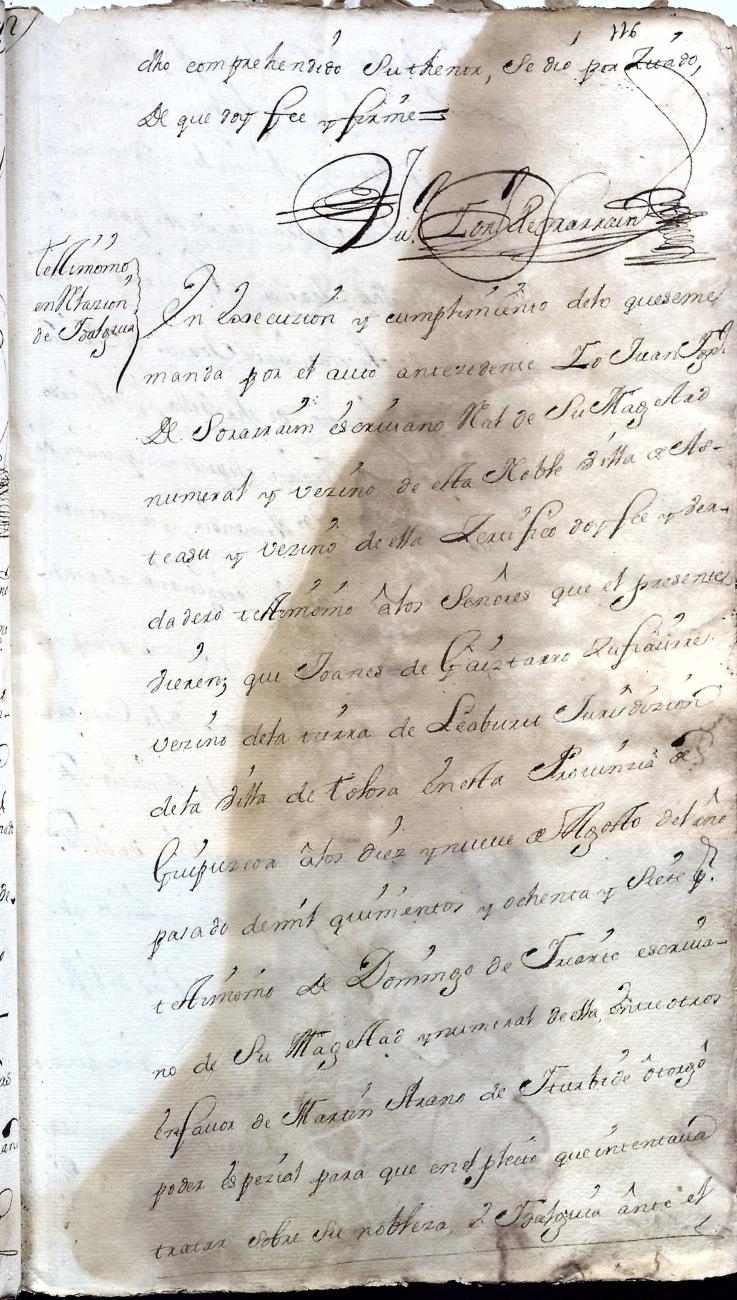 116
dho comprehendido Su thenor, Se dió por Zitado,
De que doy fee y firme=
Ju. Ton. de Sorarrain
testimonio
en Rlazion
de Idalguia
En Execuzion y cumplimiento delo queseme
manda por el auto antezedente Yo Juan
De Sorarrain escriuano Rl de Su Magestad
numeral y vezino de esta Noble Villa de As-
teasu y vezino de ella Zertifico doy fee y verda-
dadero testimonio â los Señores que el presente
vieren; que Joanes de Gaiztarro Zufiaurre
vezino dela tierra de Leaburu Jurisdizion
dela Villa de tolosa en esta Prouinzia de
Guipuzcoa â los diez y nueue de Agosto del año
pasado de mil quinientos y ochenta y Siete p.
testimonio de Domingo de Iriarte escriua-
no de Su Magestad y numeral de ella, entre otros
en fauor de Martin Arano de Iturbide ôtorgô
poder espezial para que en el pleito que intentaua
tratar sobre su nobleza, è Idalguia ânte el